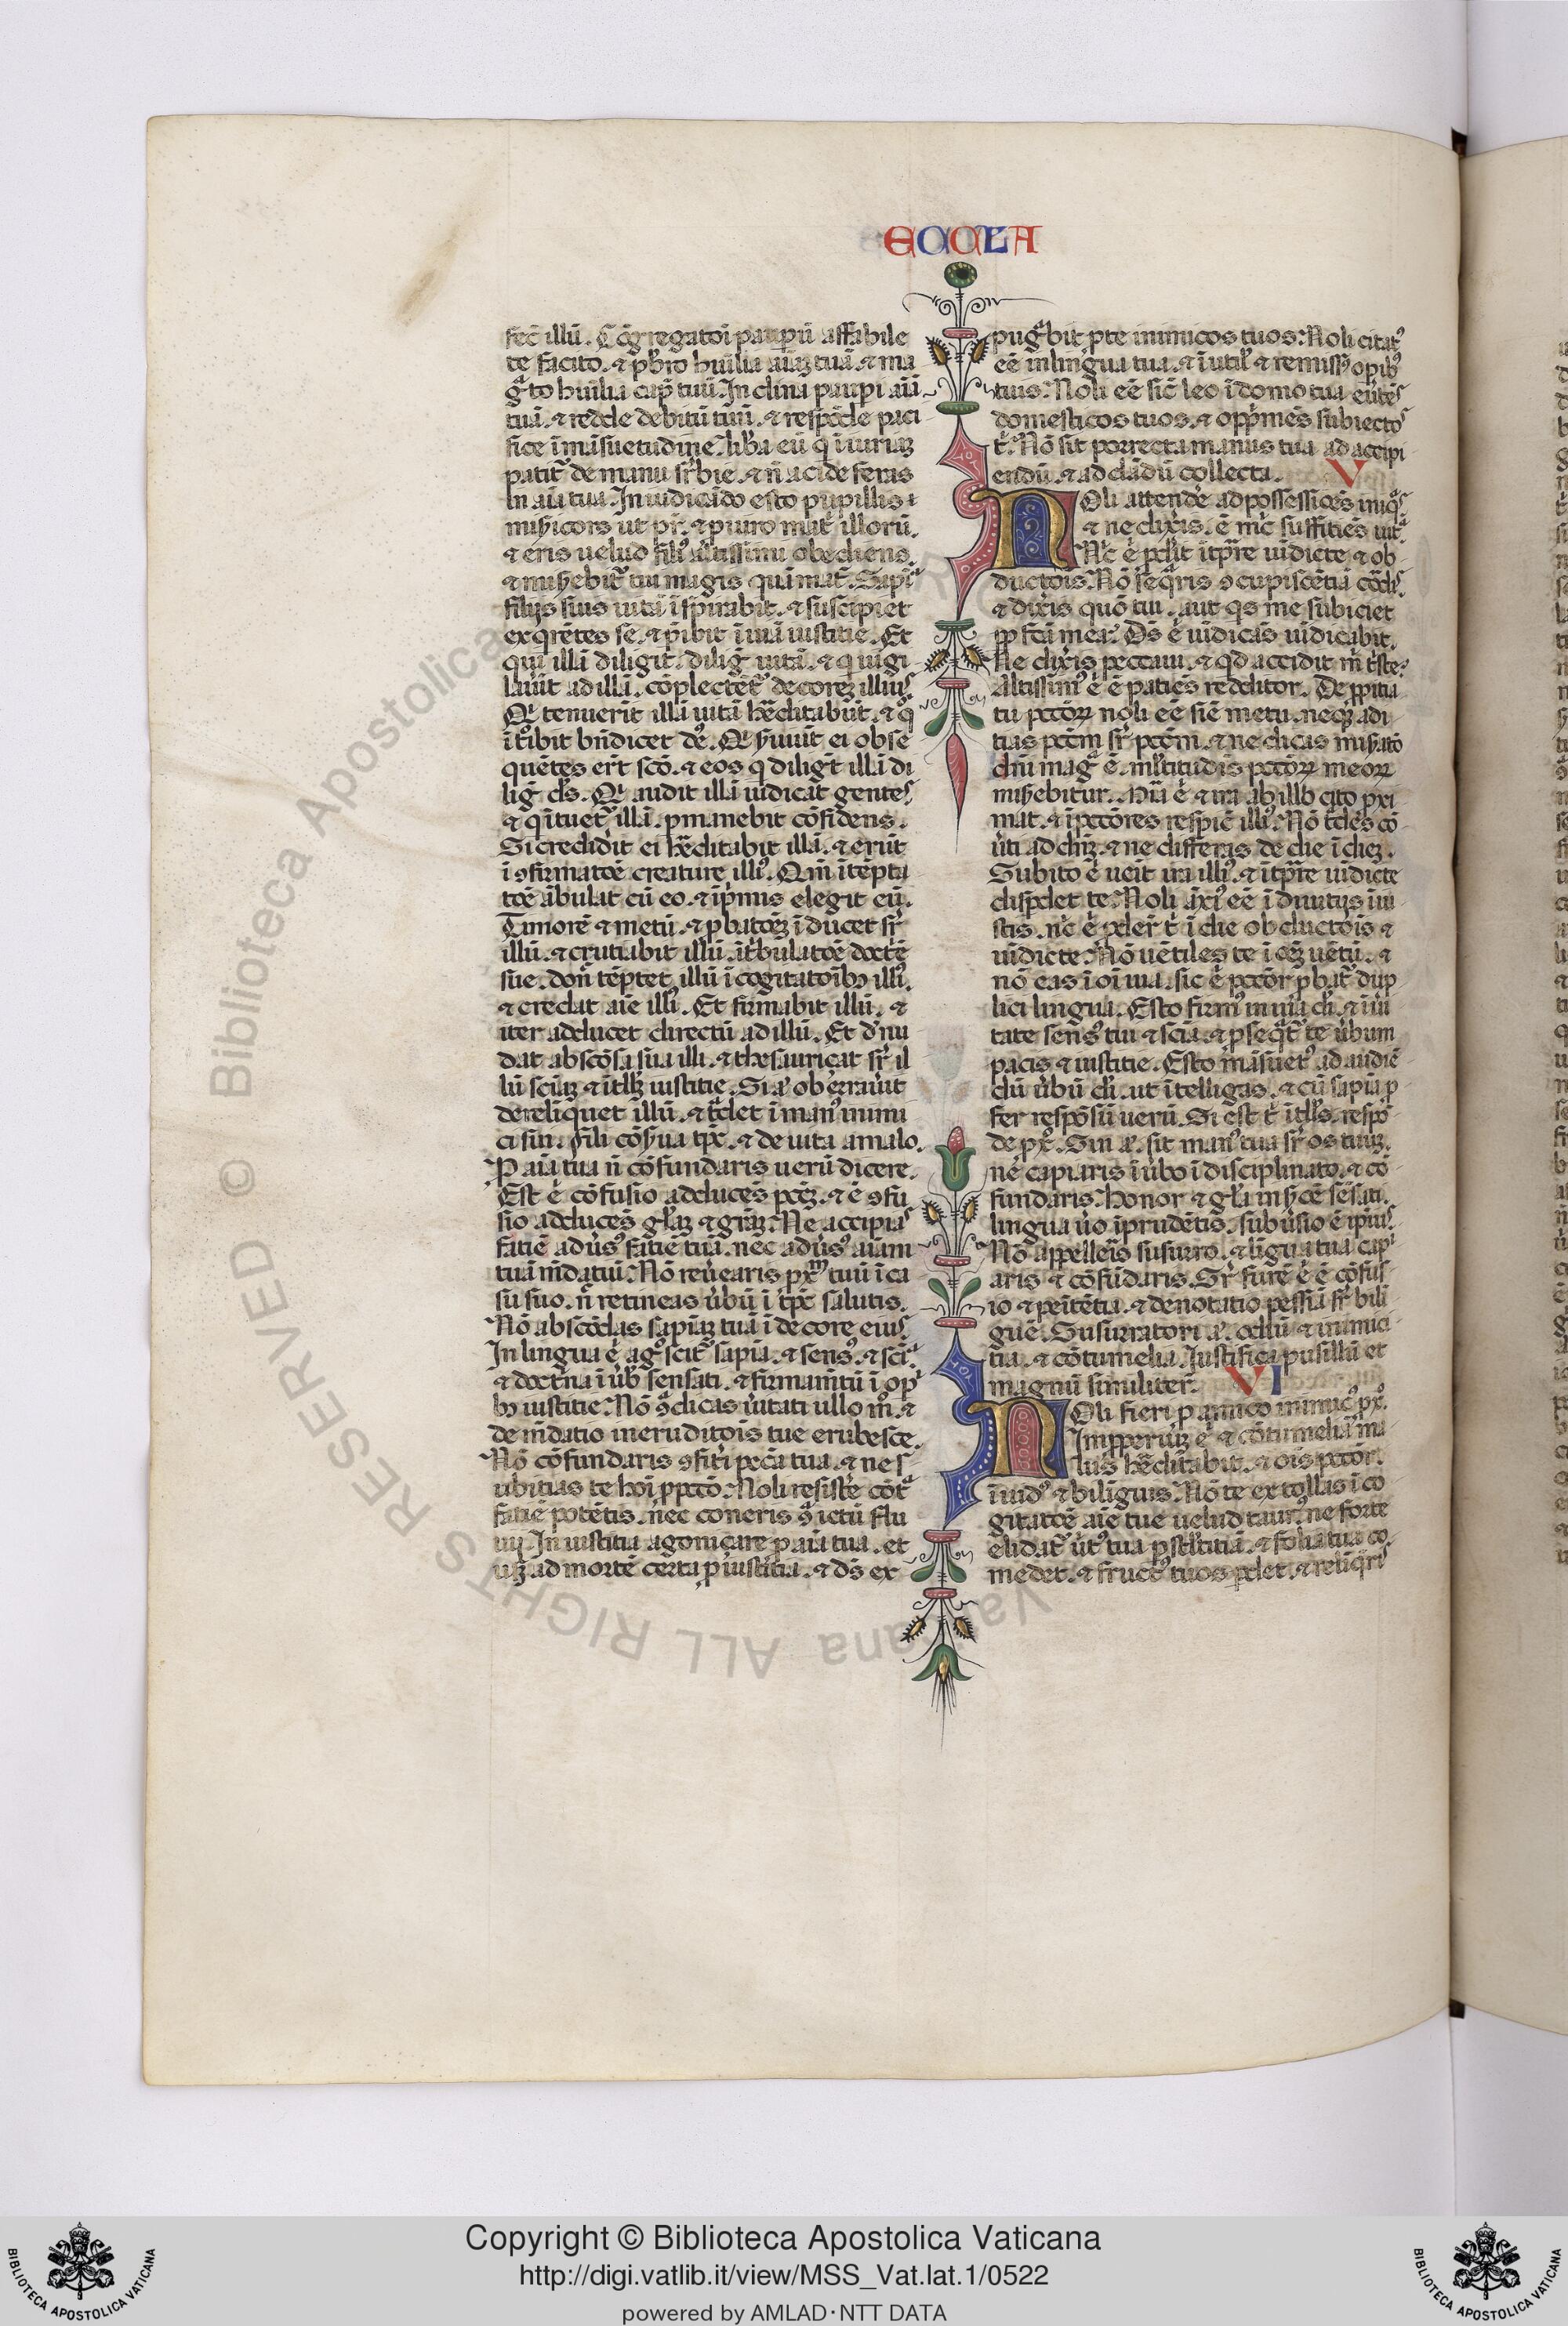 ECCLA
fec̄ illū. Cōgregatōi paupū affabile
te facito. ⁊ p̄bro huīlia aiāꝫ tuā. ⁊ ma
gͣto huīlia cap̄ tuū. Inclina paupi aūē
tuā. ⁊ redde debitū tuū. ⁊ respōde paci
fice ī māsuetudine. lib̄a eū q̄ ī iuriaꝫ
patit᷑ de manu sup̄bie. ⁊ n̄ acide feras
in aīa tua. In iudicādo esto pupillis
misicors ut pr̄. ⁊ p uiro mat̄ illorū.
⁊ eris uelud fili᷒ altissimi obediens.
⁊ misebit᷑ tui magis quā mat̄. Sapīͣ
filijs suis uitā īspirabit. ⁊ suscipiet
exqrētes se. ⁊ p̄ibit ī uiā iustitie. Et
qui illā diligit. diliḡ uitā. ⁊ q uigi
lauīt ad illā. cōplectēt᷑ decoreꝫ illius
Qͥ tenuerīt illā uitā hēditabūt. ⁊ qͦ
ītͦibit bn̄dicet de᷒. Qͥ s̄uiūt ei obse
quētes erūt scō. ⁊ eos q diligūt illā di
liḡ ds̄. Qͥ audit illā iudicat gentes
⁊ q ītuet᷑ illā. pmanebit cōfidens.
Si credidīt ei hēditabit illā. ⁊ erūt
ī ꝯfirmatōe creature illi᷒. Qm̄ ī tēpta
tōe ābulat cū eo. ⁊ īpmis elegit eū.
Timorē ⁊ metū. ⁊ pbatōeꝫ īducet sr̄
illū. ⁊ crutiabit illū. ī tͥbulatōe doctē
sue. donͨ tēptet illū ī cogitatōibꝫ illi᷒.
⁊ credat aīe illi᷒. Et firmabit illū. ⁊
iter adducet directū ad illū. Et dnu
dat abscōsa sua illi. ⁊ thesauricat sr̄ il
lū sciāꝫ ⁊ ītllꝫ iustitie. Si aͧ oberrauīt
derelinquet illū. ⁊ tͣdet ī man᷒ inimi
ci sui. Fili cōs̄ua tp̄ꝰ. ⁊ deuita a malo.
P aīa tua n̄ cōfundaris uerū dicere.
Est ē cōfusio adducēs pctꝫ. ⁊ ē ꝯfu
sio adducēs gl̄aꝫ ⁊ gr̄aꝫ. Ne accipias
fatiē adūs᷒ fatiē tuā. nec adūs᷒ aīam
tuā mēdatiū. Nō reūearis pxᵐ tuū ī ca
su suo. n̄ retineas ūbū ī tp̄ꝰ salutis.
Nō abscōdas sapiāꝫ tuā ī decore eius
In lingua ē agͦscit᷑ sapīa. ⁊ sens᷒. ⁊ scīͣ
⁊ doctͥna ī ūbͦ sensati. ⁊ firmamtū ī op̄
bꝫ iustitie. Nō ꝯtͣdicas ūitati ullo mͦ. ⁊
de mēdatio ineruditōis tue erubesce.
Nō cōfundaris ꝯfiteri pcc̄a tua. ⁊ ne s
ubitias te hoī p pctō. Noli resistē cōtͣ
fatiē potētis. nec coneris ꝯtͣ ictū flu
uij. In iustitia agonicare p aīa tua. et
usqꝫ ad mortē certa p iustitia. ⁊ ds̄ ex
pugͣbit p te inimicos tuos. Noli citat᷒
eē in lingua tua. ⁊ īutilͥ ⁊ remiss᷒ ī opibꝰ
tuis. Noli eē sic̄ leo ī domo tua eūtēs
domesticos tuos. ⁊ opp̄mēs subiectos
tͥ. Nō sit porrecta manus tua ad accipi
endū. ⁊ ad dādū collecta.
V
NOli attendē ad possessiōes iniqͣs
⁊ ne dix̄is. ē mͥ suffitiēs uitͣ.
Nͥl ē pdēit ī tp̄re uīdicte ⁊ ob
ductōis. Nō seqͣris ꝯcupiscētiā cōdis
⁊ dix̄is quō tui. aut qͥs me subiciet
pp̄ fcā mea. Ds̄ ē uīdicās uīdicabit.
Ne dix̄is peccaui. ⁊ qd accidit mͥ tͥste.
Altissim᷒ ē ē patiēs redditor. De ppitia
tu pctōꝝ noli eē siē metu. neqꝫ adi
tias pctm sr̄ pctm. ⁊ ne dicas misatō
dn̄i magͣ ē. ml̄titudīs pctōꝝ meoꝝ
misebitur. Mīa ē ⁊ ira ab illo cito pxi
mat. ⁊ ī pctōres respic̄ illi᷒. Nō tͣdes cō
ūti ad dn̄ꝫ. ⁊ ne differas de die ī dieꝫ.
Subito ē ueīt ira illi᷒. ⁊ ī tp̄re uīdicte
dispdet te. Noli āxi᷒ eē ī diuitijs iniu
stis. nͥl ē pdeīt tͥ ī die obductōis ⁊
uīdicte. Nō uētiles te ī oēꝫ uētū. ⁊
nō eas ī oī uia. sic ē pctōr pbat᷑ dup
lici lingua. Esto firm᷒ in uia dn̄i. ⁊ ī ūi
tate sens᷒ tui ⁊ sciā. ⁊ p seqͣt᷑ te ūbum
pacis ⁊ iustitie. Esto māsuet᷒ ad audiē
dū ūbū dī. ut ītelligas. ⁊ cū sapīa p
fer respōsū uerū. Si est tͥ ītll̄s. respō
de pxͦ. Sin aͧ. sit man᷒ tua sr̄ os tuūꝫ.
ne capiaris ī ūbo īdisciplinato. ⁊ cō
fundaris. Honor ⁊ gl̄a ī s̄mōe sēsati.
lingua ūo īprudētis. subūsio ē ipsius.
Nō appelleris susurro. ⁊ līgua tua capi
aris ⁊ cōfūdaris. Sr̄ furē ē ē cōfus
io ⁊ peītētia. ⁊ denotatio pessīa sr̄ bili
guē. Susurratori aͧ. odiū ⁊ inimici
tia. ⁊ cōtumelia. Iustifica pusillū et
magnū similiter.
VI
NOli fieri p amico inimic᷒ pxͦ.
Impperiūꝫ ē ⁊ cōtumeliā ma
lus hēditabit. ⁊ oīs pctōr.
īuid᷒ ⁊ biliguis. Nō te extollas ī co
gitatōe aīe tue uelud taur᷒. ne forte
elidat᷑ ūt᷒ tua p stl̄titiā. ⁊ folia tua co
medet. ⁊ fruct᷒ tuos pdet. ⁊ reliqͥris
© Biblioteca Apostolica Vaticana ALL RIGHTS RESERVED
Copyright © Biblioteca Apostolica Vaticana
http://digi.vatlib.it/view/MSS_Vat.lat.1/0522
powered by AMLAD·NTT DATA
BIBLIOTECA APOSTOLICA VATICANA
BIBLIOTECA APOSTOLICA VATICANA